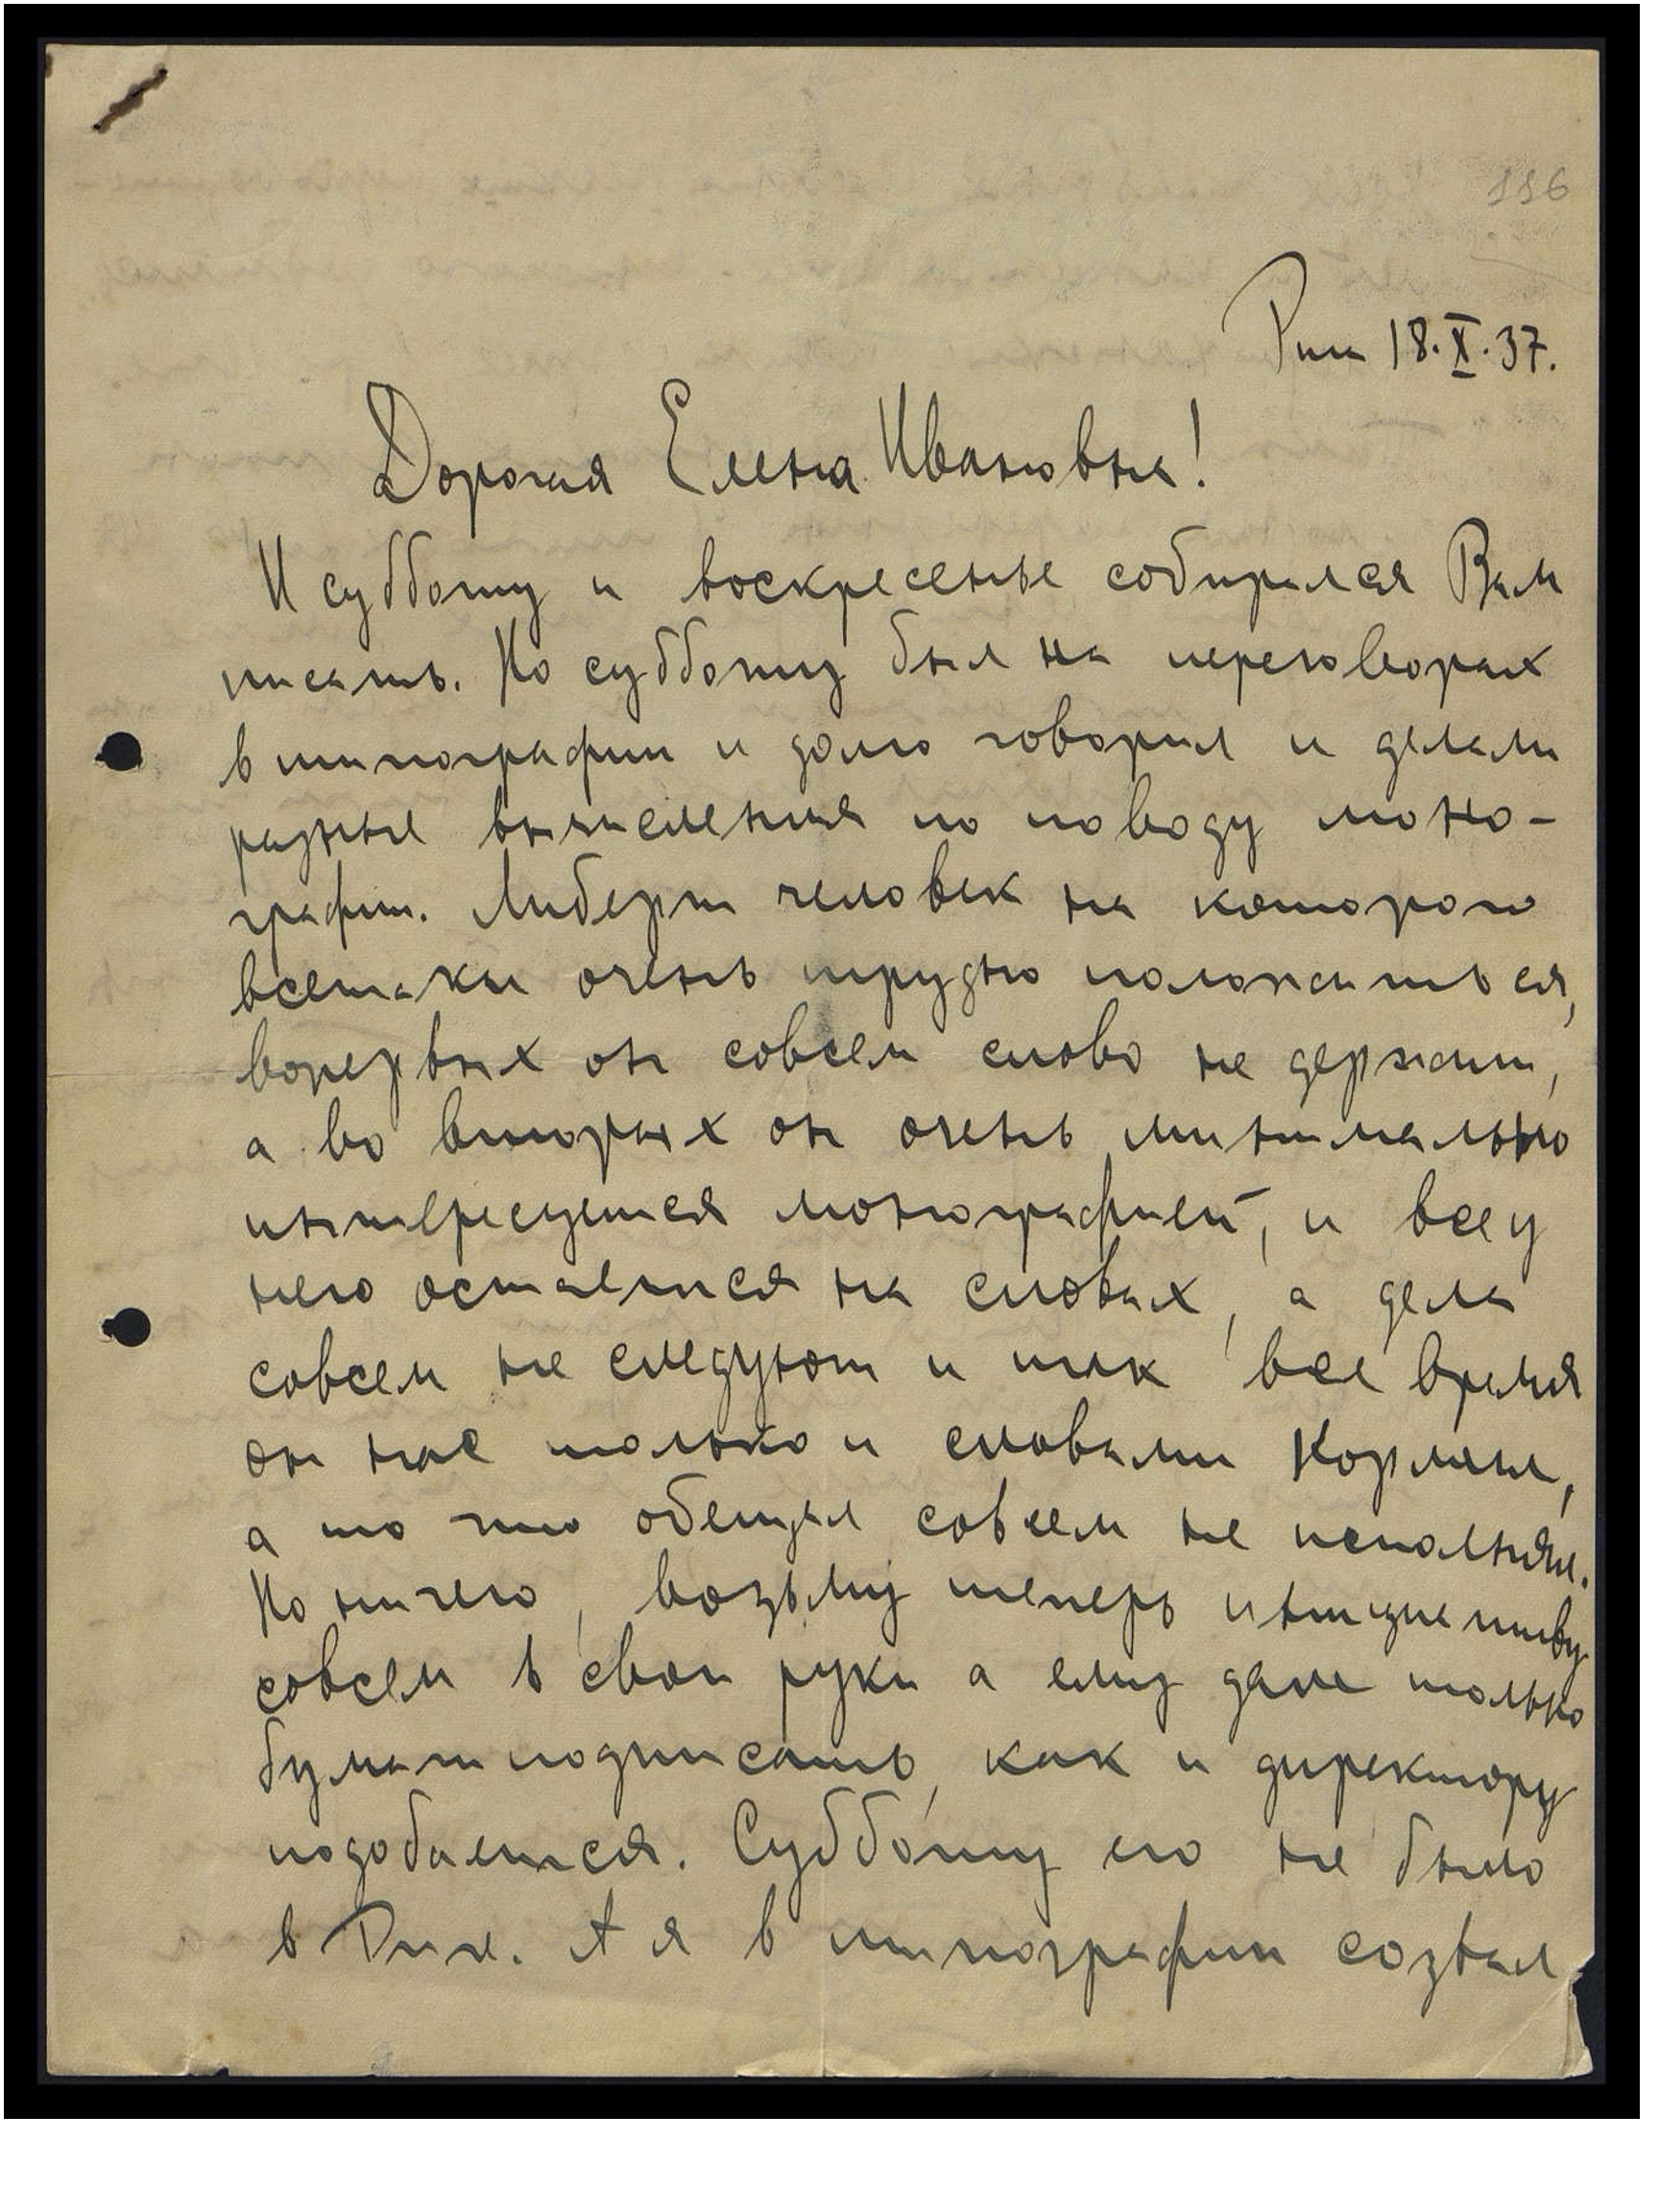 116
Рига 18.X.37.
Дорогая Елена Ивановна!
И субботу и воскресенье собирался Вам
писать. Но субботу был на переговорах
в типографии и долго говорил и делали
разные вычисления по поводу моно-
графии. Либерт человек на которого
всетаки очень трудно положиться,
вопервых он совсем слово не держит,
а во вторых он очень минимально
интересуется монографией, и все у
него остается на словах, а дела
совсем не следуют и так все время
он нас только и словами кормил,
а то что обещал совсем не исполнял.
Но ничего, возьму теперь инициативу
совсем в свои руки а ему даже только
бумаги подписать, как и директору
подобается. Субботу его не было
в Риге. А я в типографии созвал